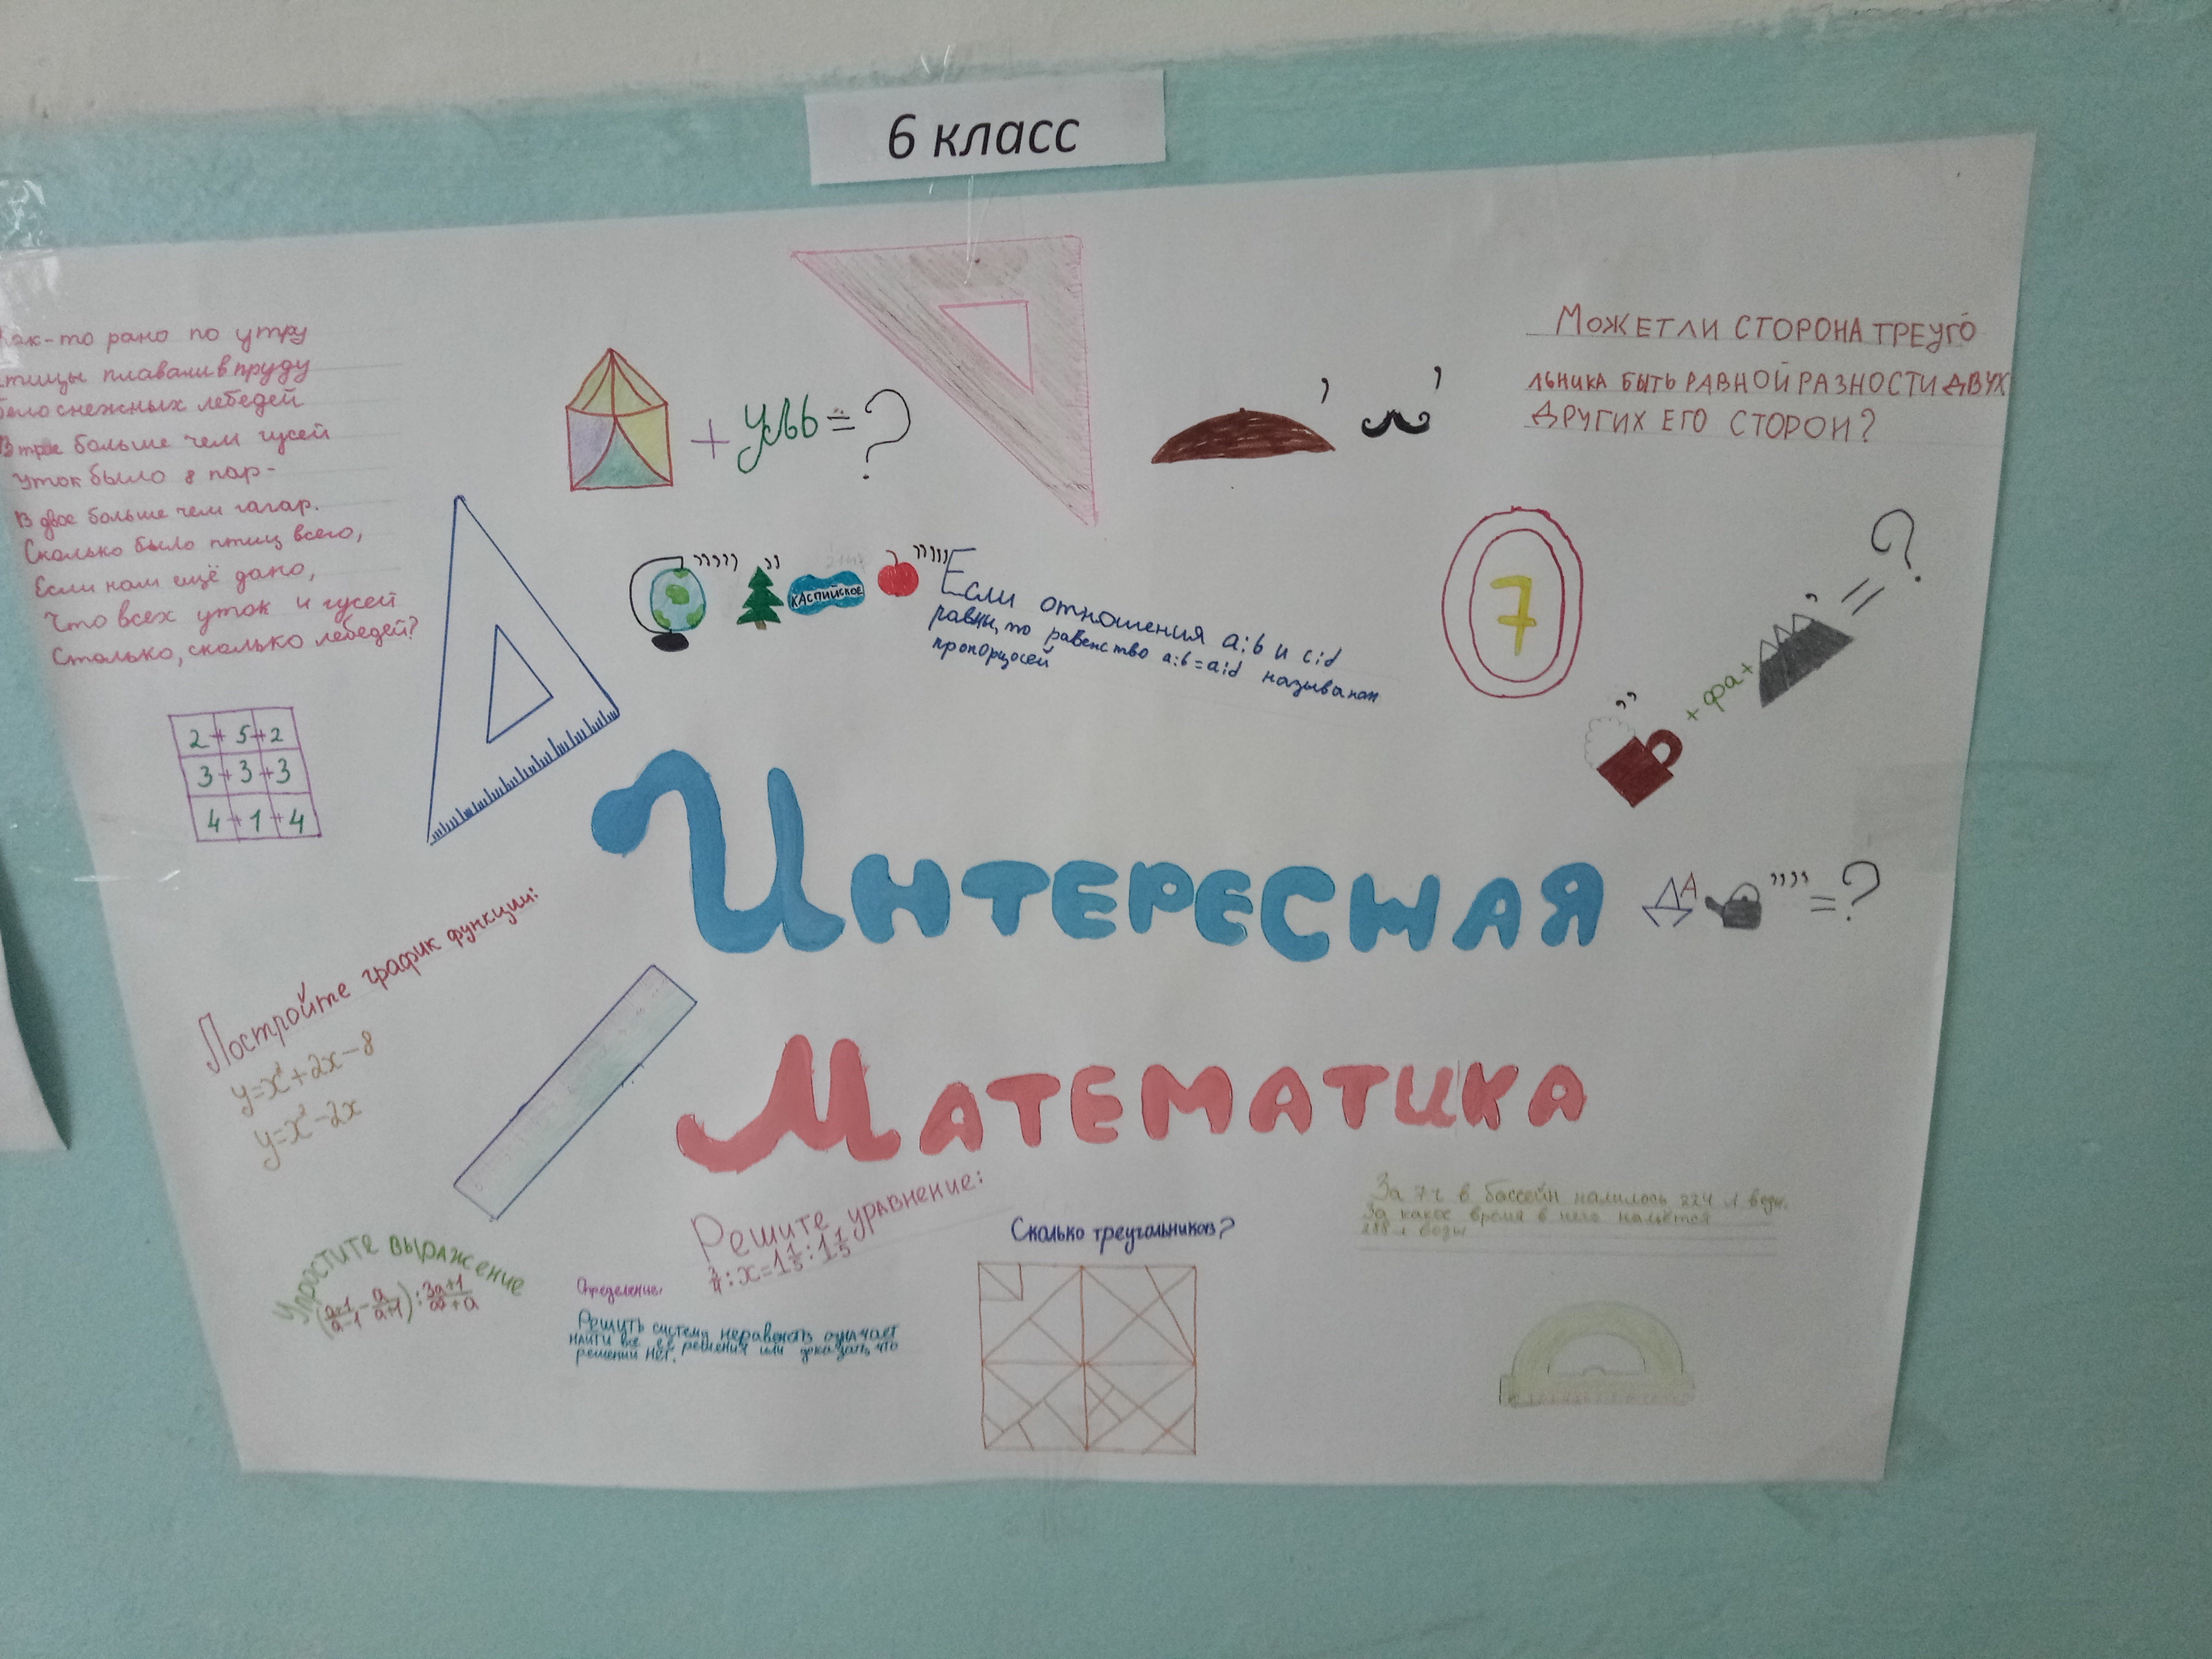 6 класс
Как-то рано по утру
птицы плавали в пруду
белоснежных лебедей
В трое больше чем гусей
Уток было 8 пар-
В двое больше чем гагар.
Сколько было птиц всего,
Если нам ещё дано,
Что всех уток и гусей
Столько, сколько лебедей?
+ уль = ?
, ,
МОЖЕТ ЛИ СТОРОНА ТРЕУГО
ЛЬНИКА БЫТЬ РАВНОЙ РАЗНОСТИ ДВУХ
ДРУГИХ ЕГО СТОРОН?
,,,,, ,, КАСПИЙСКОЕ ,,,,,
Если отношения a:b и c:d
равны, то равенство a:b=a:d называют
7
,, + фа + , = ?
2 + 5 + 2
3 + 3 + 3
4 + 1 + 4
ИНТЕРЕСНАЯ
А ,,,, = ?
Постройте график функции:
y=x²+2x-8
y=x²-2x
МАТЕМАТИКА
Упростите выражение
(a+1/a-1 - a/a+1) : 3a+1/a2+a
Решите уравнение:
: x = 1 1/5 : 1 1/5
Определение:
Решить систему неравенств означает
найти все её решения или доказать, что
решений нет.
Сколько треугольников?
За 7 ч в бассейн налилось 224 л воды.
За какое время в него нальётся
288 л воды